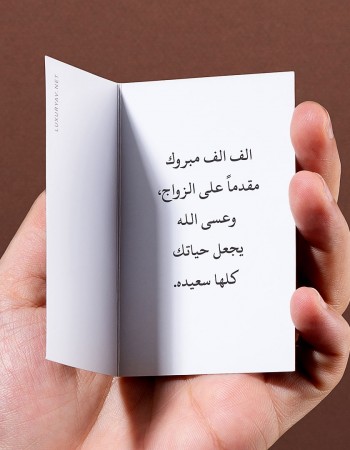 الف الف مبروك
مقدماً على الزواج،
وعسى الله
يجعل حياتك
كلها سعيده.